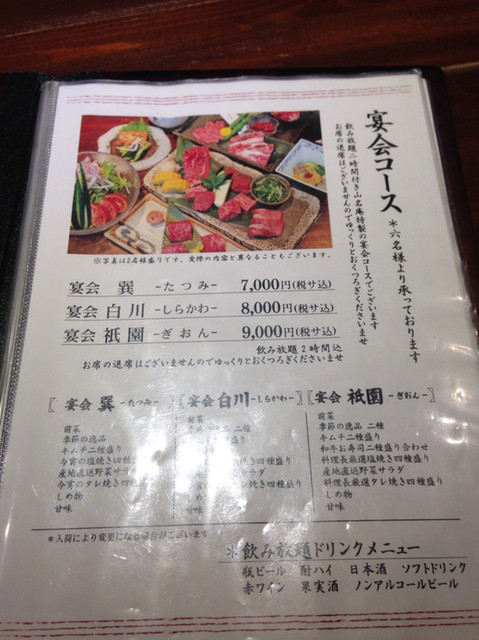 宴会コース
＊六名様より承っております
飲み放題二時間付き山名庵特製の宴会コースでございます
お席の退席はございませんのでゆっくりとおくつろぎくださいませ
※写真は2名様盛りです。実際の内容と異なることもございます。
宴会 巽 -たつみ- 7,000円(税サ込)
宴会 白川 -しらかわ- 8,000円(税サ込)
宴会 祇園 -ぎおん- 9,000円(税サ込)
飲み放題2時間込
お席の退席はございませんのでゆっくりとおくつろぎくださいませ
〖宴会 巽 -たつみ-〗
前菜
季節の逸品
キムチ二種盛り
今宵の塩焼き四種盛り
産地直送野菜サラダ
今宵のタレ焼き四種盛り
しめ物
甘味
〖宴会 白川 -しらかわ-〗
前菜
二種
盛り
四種盛り
サラダ
四種盛り
しめ物
甘味
〖宴会 祇園 -ぎおん-〗
前菜
季節の逸品 二種
キムチ二種盛り
和牛お寿司二種盛り合わせ
料理長厳選塩焼き四種盛り
産地直送野菜サラダ
料理長厳選タレ焼き四種盛り
しめ物
甘味
＊入荷により変更になる場合がございます
＊飲み放題ドリンクメニュー
瓶ビール 酎ハイ 日本酒 ソフトドリンク
赤ワイン 果実酒 ノンアルコールビール